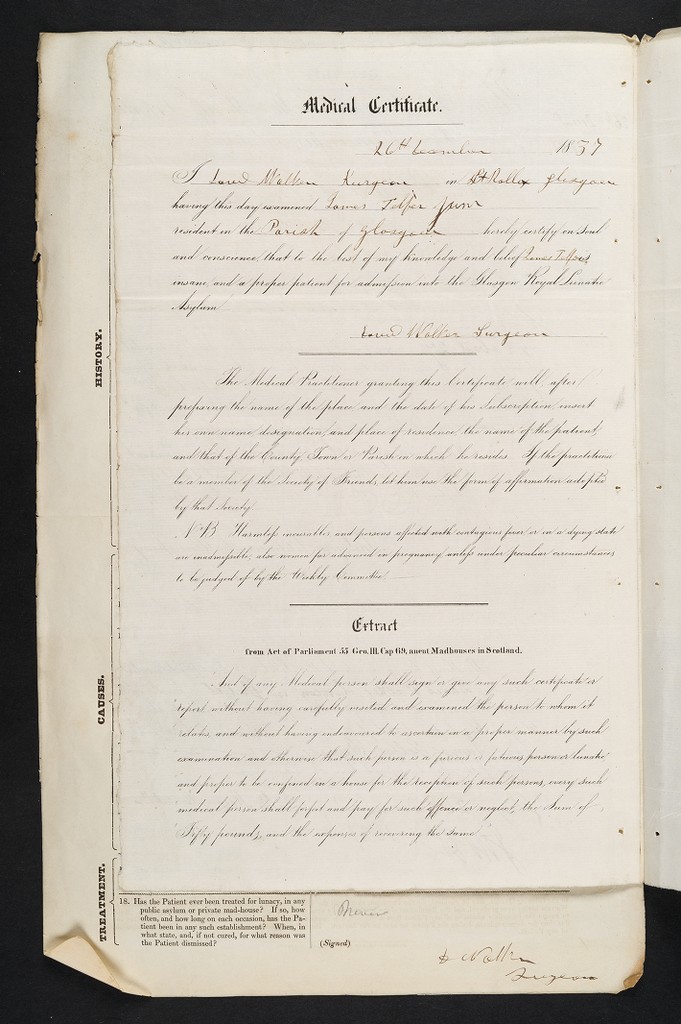 Medical Certificate.
26th December 1857
I David Walker Surgeon in St Rollox Glasgow
having this day examined James Telfer Junr
resident in the Parish of Glasgow hereby certify on soul
and conscience, that to the best of my knowledge and belief James Telfer is
insane, and a proper patient for admission into the Glasgow Royal Lunatic
Asylum
David Walker Surgeon
The Medical Practitioner granting this Certificate will, after
prefixing the name of the place and the date of his Subscription, insert
his own name, designation, and place of residence, the name of the patient,
and that of the County, Town or Parish in which he resides. If the practitioner
be a member of the Society of Friends, let him use the form of affirmation adopted
by that Society.
N.B. Harmless incurables, and persons affected with contagious fever or in a dying state
are inadmissible, also women far advanced in pregnancy unless under peculiar circumstances
to be judged of by the Weekly Committee.
Extract
from Act of Parliament 55 Geo. III. Cap 69, anent Madhouses in Scotland.
And if any Medical person shall sign or give any such certificate or
report without having carefully visited and examined the person to whom it
relates and without having endeavoured to ascertain in a proper manner by such
examination and otherwise that such person is a furious or fatuous person or lunatic
and proper to be confined in a house for the reception of such persons, every such
medical person shall forfeit and pay for such offence or neglect, the Sum of
Fifty pounds, and the expenses of recovering the same.
HISTORY.
CAUSES.
TREATMENT.
18. Has the Patient ever been treated for lunacy, in any
public asylum or private mad-house? If so, how
often, and how long on each occasion, has the Pa-
tient been in any such establishment? When, in
what state, and, if not cured, for what reason was
the Patient dismissed?
Never
(Signed)
D Walker
Surgeon